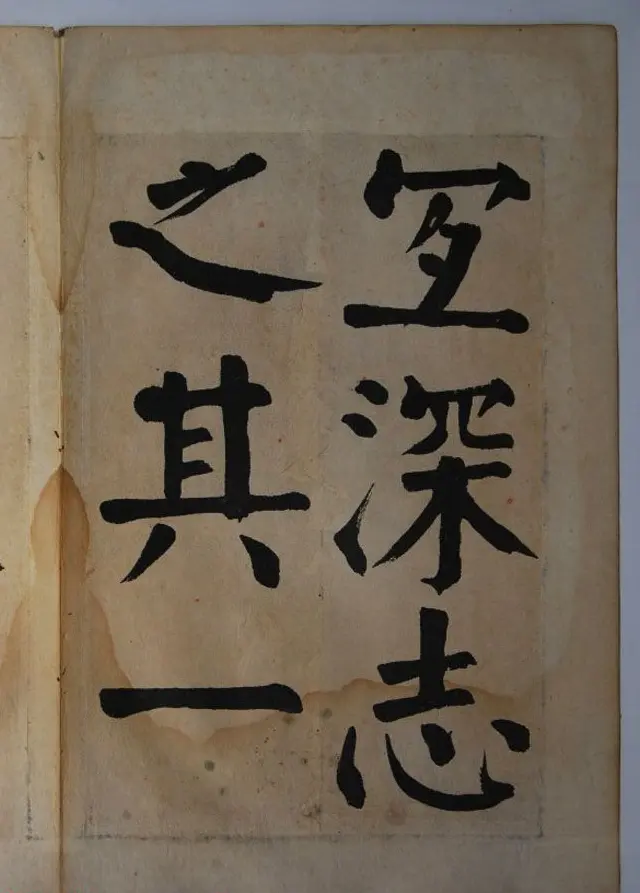 宜深志
之其一